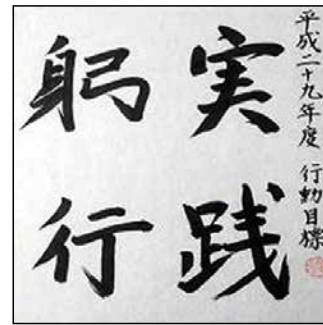 平成二十九年度 行動目標
実践
躬行